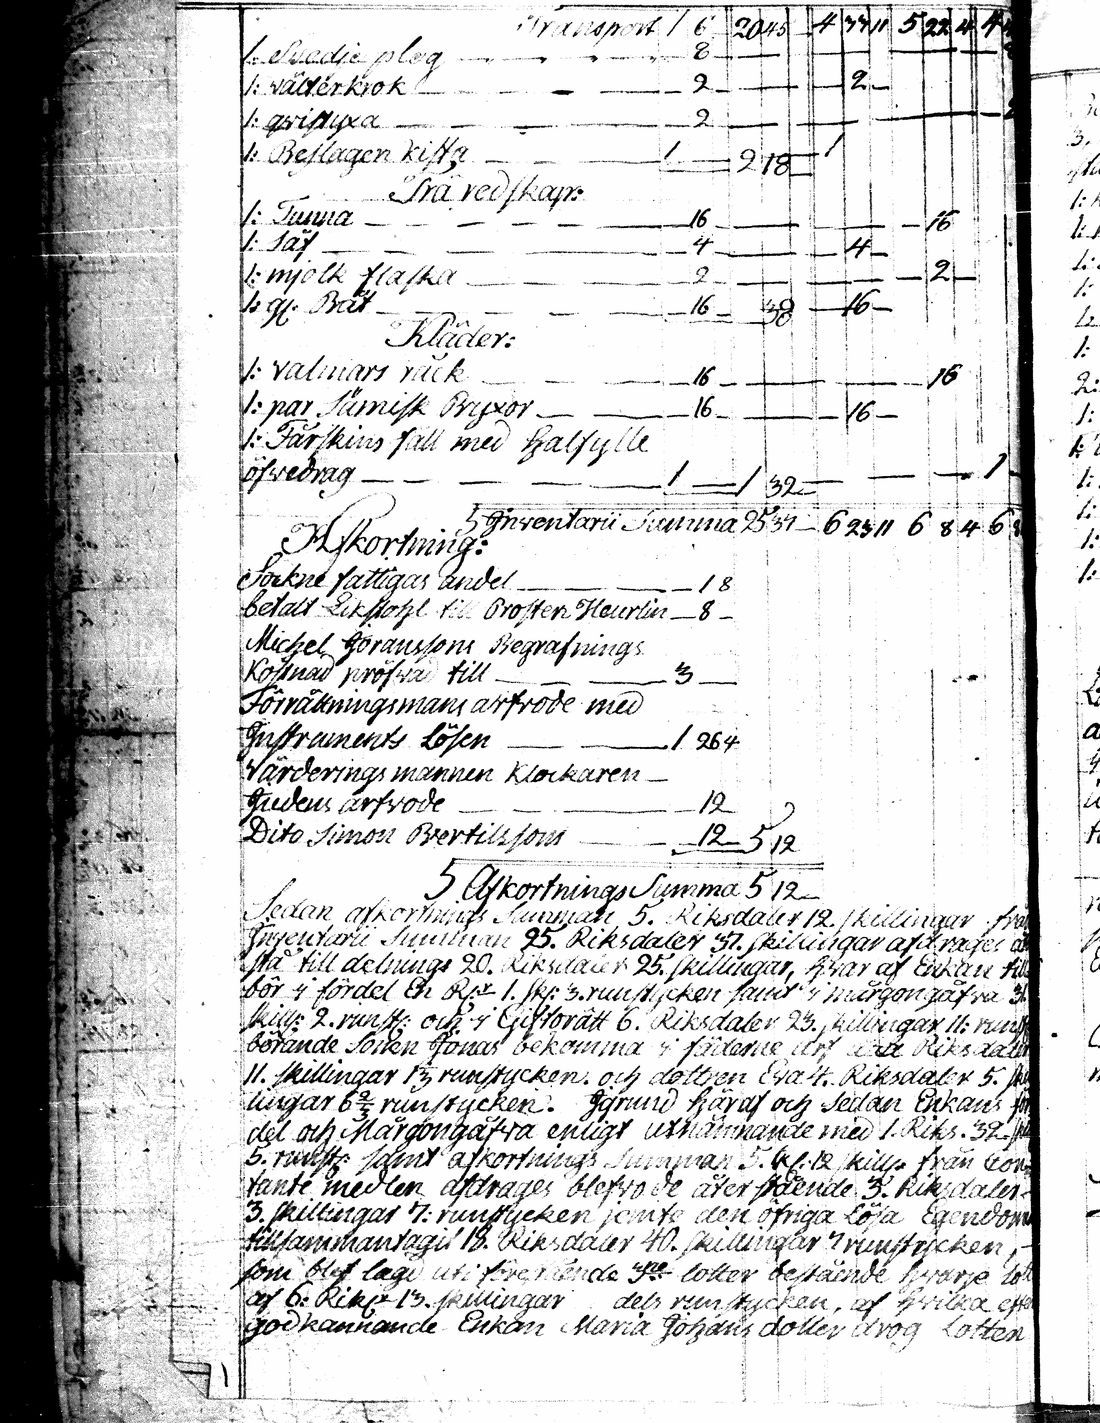 Transport 1 6 20 45 4 33 11 5 22 4 4
1: Svedje plog 8
1: välterkrok 2 2
1: qvistyxa 2
1: Beslagen kista 1 2 18 1
Trä redskap:
1: Tunna 16 16
1: Såf 4 4
1: mjölk flaska 2 2
1: gl: Båt 16 38 16
Kläder:
1: valmars råck 16 16
1: par Sämisk Byxor 16 16
1: Fårskins fäll med halfylle
öfvedrag 1 1 32 1
Inventarii Summa 25 37 6 23 11 6 8 4 6
Afkortning:
Sockne fattigas andel 1 8
betalt Likstohl till Prosten Heurlin 8
Michel Göranssons Begrafnings
Kostnad pröfvad till 3
Förrättningsmans arfvode med
Instruments Lösen 1 26 4
Värderings mannen Klockaren
Gudens arfvode 12
Dito Simon Bertilssons 12 5 12
Afkortnings Summa 5 12
Sedan afkortnings Summan 5. Riksdaler 12. skillingar från
Inventarii Summan 25. Riksdaler 37. skillingar afdrages
stå till delnings 20. Riksdaler 25. skillingar, hvar af Enkan till
bör i fördel En Rdr 1. sk: 3. runstycken samt i margongåfva
skill: 2. runst: och i Giftorätt 6. Riksdaler 23. skillingar 11: runst
börande Sonen Jonas bekomma i fäderne arf Riksdaler
11. skillingar runstycken. och dottren Eva 4. Riksdaler 5. skil
lingar 6 2/3 runstycken. I grund häraf och Sedan Enkans för
del och Margongåfva enligt utnämnande med 1. Riks. 32. sk
5. runst: samt afkortnings Summan 5. 12 skill: från Con
tante medlen afdrages blefvo de återstående 3. Riksdaler
3. skillingar 7: runstycken jemte den öfriga Lösa Egendom
tillsammantagit 18. Riksdaler 40. skillingar 7 runstycken,
som blef lagd uti 3ne lotter bestående hvarje lott
af 6: Riksdr 13. skillingar dels runstycken, af hvilka efter
godkännande Enkan Maria Johans dotter drog Lotten